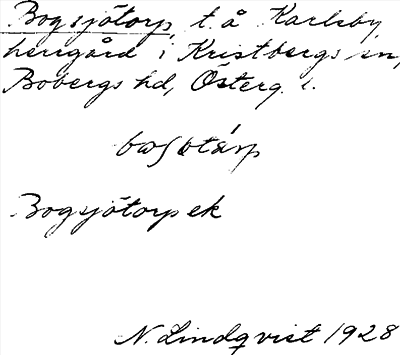 Bogsjötorp, t. å Karlsby
herrgård i Kristbergs sn,
Bobergs hd, Österg. l.
Bogsjötorp ek
N. Lindqvist 1928